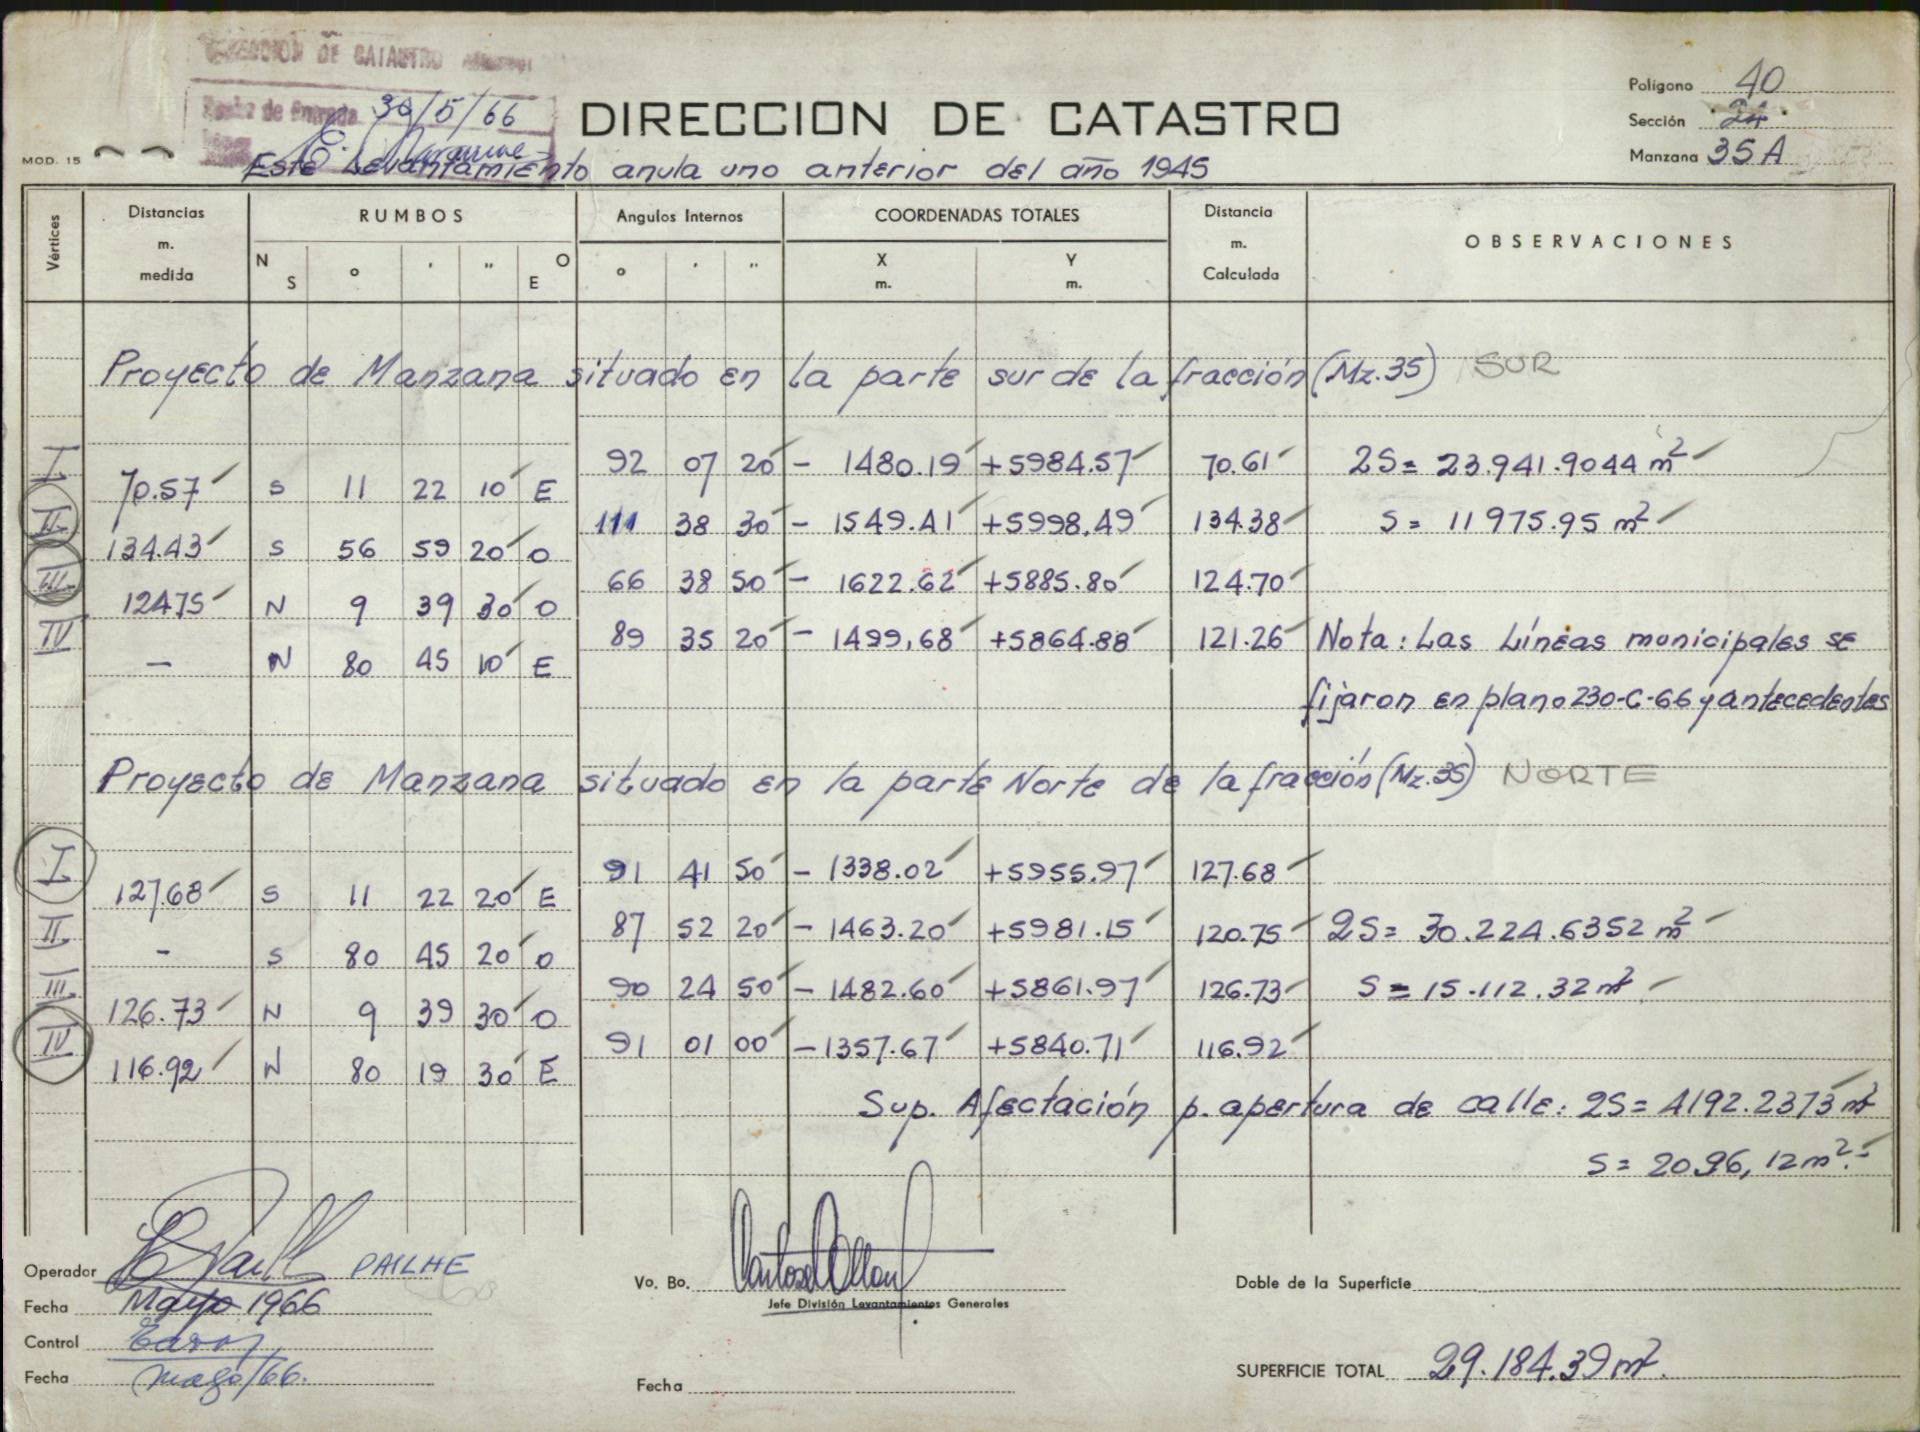 DIRECCION DE CATASTRO
30/5/66
Polígono 40
DIRECCION DE CATASTRO
Sección 24
MOD. 15
Este Levantamiento anula uno anterior del año 1945
Manzana 35A
Vértices Distancias m. medida RUMBOS Angulos Internos COORDENADAS TOTALES Distancia m. Calculada OBSERVACIONES
N S ° ' " O E ° ' " X m. Y m.
Proyecto de Manzana situado en la parte sur de la fracción (Mz.35) SUR
I 92 07 20 - 1480.19 +5984.57 70.61 2S= 23.941.9044 m²
70.57 S 11 22 10 E
II 111 38 30 - 1549.41 +5998.49 134.38 S= 11975.95 m²
134.43 S 56 59 20 O
III 66 38 50 - 1622.62 +5885.80 124.70
124.75 N 9 39 30 O
IV 89 35 20 - 1499.68 +5864.88 121.26 Nota: Las Líneas municipales se
— N 80 45 10 E
fijaron en plano 230-C-66 y antecedentes
Proyecto de Manzana situado en la parte Norte de la fracción (Mz.35) NORTE
I 91 41 50 - 1338.02 +5955.97 127.68
127.68 S 11 22 20 E
II 87 52 20 - 1463.20 +5981.15 120.75 2S= 30.224.6352 m²
- S 80 45 20 O
III 90 24 50 - 1482.60 +5861.97 126.73 S= 15.112.32 m²
126.73 N 9 39 30 O
IV 91 01 00 - 1357.67 +5840.71 116.92
116.92 N 80 19 30 E
Sup. Afectación p. apertura de calle: 2S= 4192.2373 m²
S= 2096,12 m²
Operador PAILHE
Vo. Bo.
Doble de la Superficie
Fecha Mayo 1966
Jefe División Levantamientos Generales
Control
SUPERFICIE TOTAL 29.184.39 m²
Fecha mayo/66.
Fecha